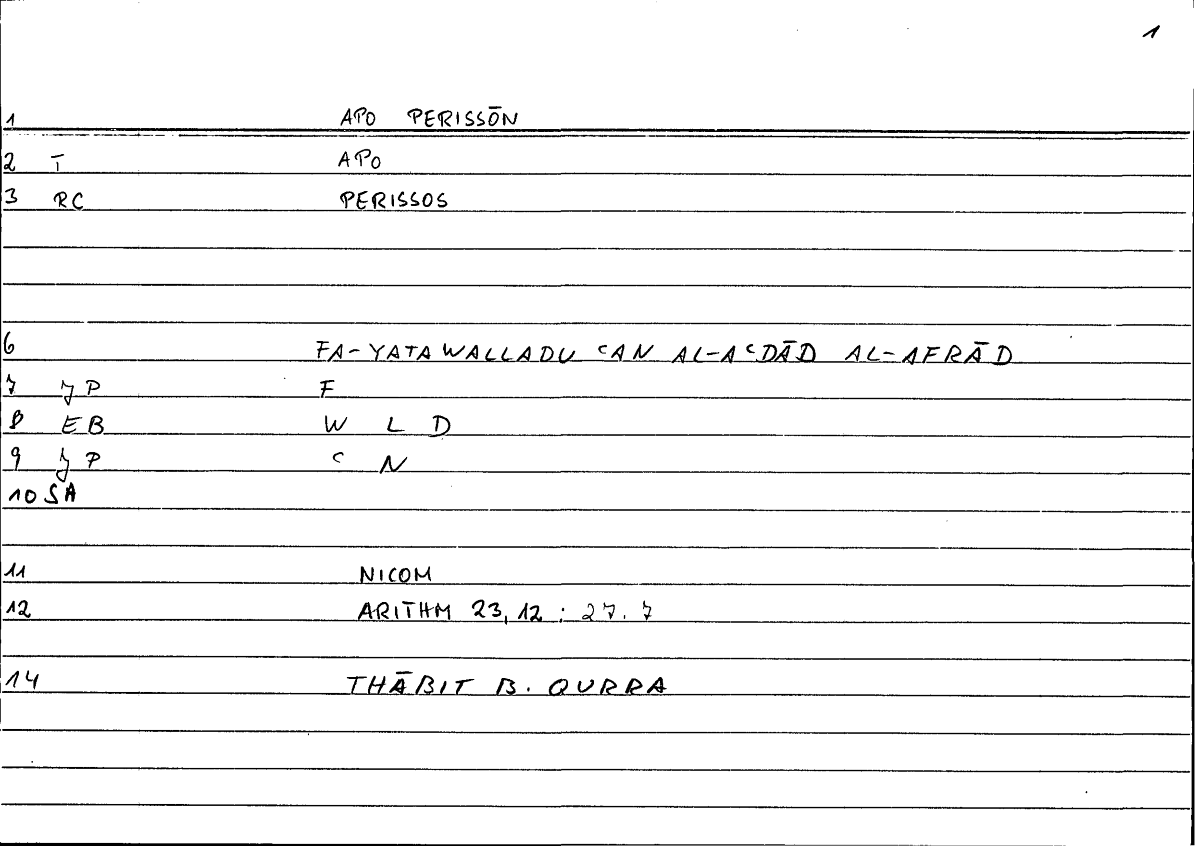 1
1 APO PERISSŌN
2 T APO
3 RC PERISSOS
6 FA-YATAWALLADU ʿAN AL-AʿDĀD AL-AFRĀD
7 JP F
8 EB W L D
9 JP ʿ N
10 SA
11 NICOM
12 ARITHM 23,12 : 27.7
14 THĀBIT B. QURRA